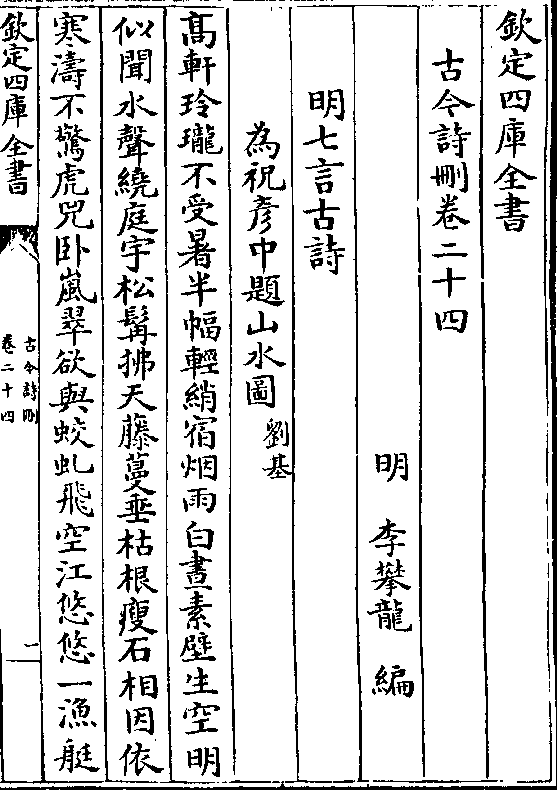 欽定四庫全書
古今詩刪卷二十四
明　李攀龍　編
明七言古詩
為祝彥中題山水圖　劉基
髙軒玲瓏不受暑半幅輕綃宿烟雨白晝素壁生空明
似聞水聲繞庭宇松髯拂天藤蔓垂枯根瘦石相因依
寒濤不驚虎兕卧嵐翠欲與蛟虬飛空江悠悠一漁艇
欽定四庫全書
古今詩刪
卷二十四
一